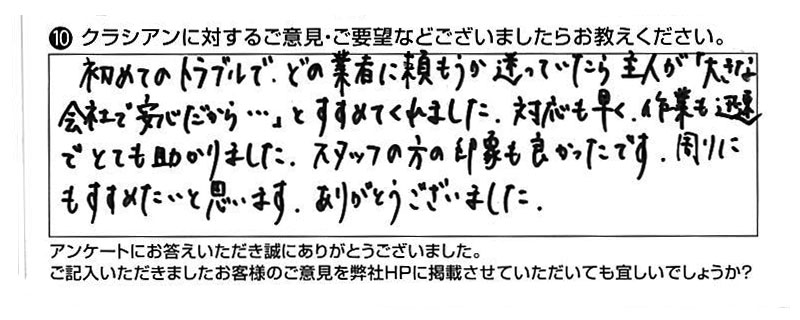 ❿ クラシアンに対するご意見・ご要望などございましたらお教えください。
初めてのトラブルで、どの業者に頼もうか迷っていたら主人が「大きな
会社で安心だから…」とすすめてくれました。対応も早く、作業も迅速
でとても助かりました。スタッフの方の印象も良かったです。周りに
もすすめたいと思います。ありがとうございました。
アンケートにお答えいただき誠にありがとうございました。
ご記入いただきましたお客様のご意見を弊社HPに掲載させていただいても宜しいでしょうか?